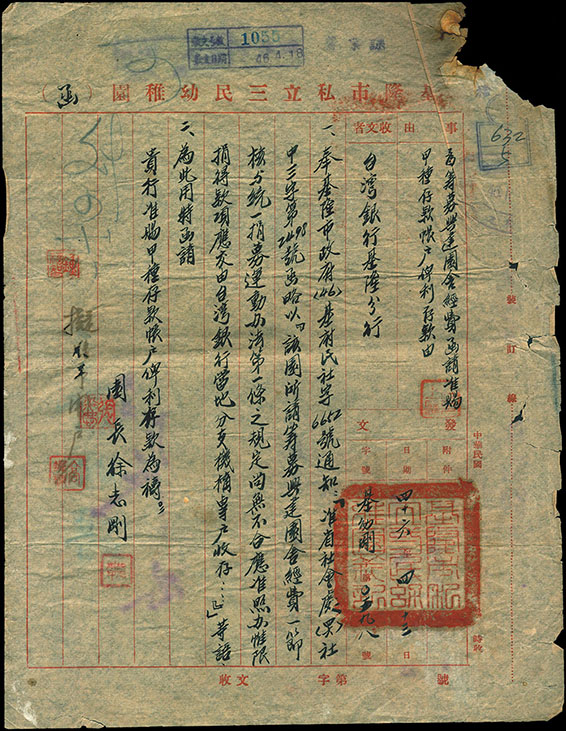 收文號數 1055
收文日期 46.4.18
基隆市私立三民幼稚園
（函）
632
5
事由
為籌募興建園舍經費函請准賜
甲種存款帳戶俾利存款由
收文者
台灣銀行基隆分行
發文
附件
日期
四十六年四月十三日
字號
基幼剛字第〇五九八號
一、奉基隆市政府(46)基府民社字6652號通知：「准省社會處(46)社
甲三字第2498號函略以『該園所請籌募興建園舍經費一節
核與統一捐募運動辦法第一條之規定尚無不合應准照辦惟限
捐得款項應交由台灣銀行當地分支機構專戶收存…』」等語
二、為此用特函請
貴行准賜甲種存款帳戶俾利存款為禱。
園長徐志剛
號訂線
中華民國
時收
收文 字第 號